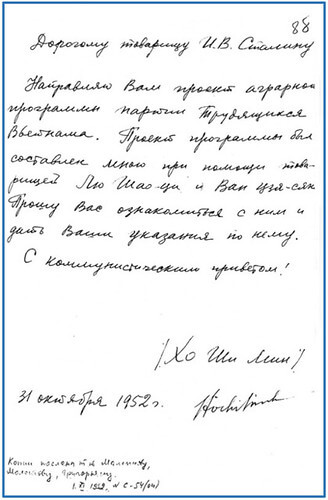 88
Дорогому товарищу И.В. Сталину
Направляю Вам проект аграрной
программы партии Трудящихся
Вьетнама. Проект программы был
составлен мною при помощи това-
рищей Лю Шао-ци и Ван Цзя-сян
Прошу Вас ознакомиться с ним и
дать Ваши указания по нему.
С коммунистическим приветом!
/Хо Ши Мин/
31 октября 1952 г. Hochiminh
Копии посланы т.т. Маленкову,
Молотову, Григорьяну.
1.XI 1952